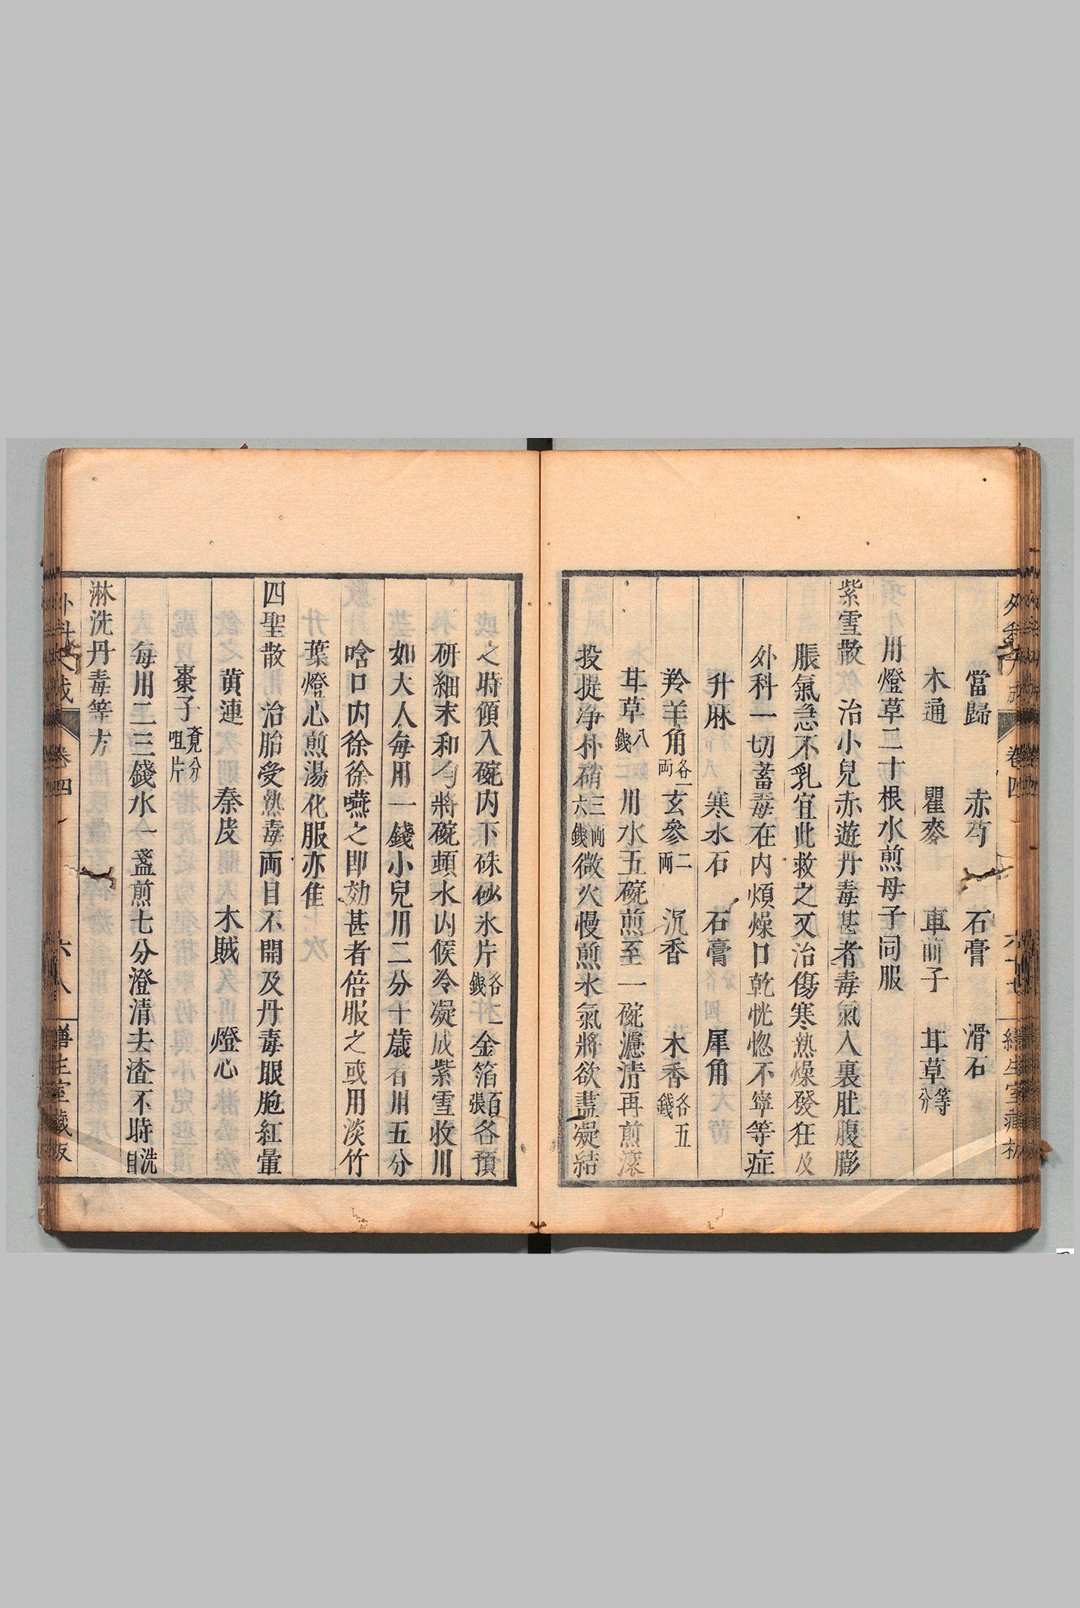 當歸　赤芍　石膏　滑石
木通　瞿麥　車前子　甘草等分
用燈草二十根水煎母子同服
紫雪散　治小兒赤遊丹毒甚者毒氣入裏肚腹膨
脹氣急不乳宜此救之又治傷寒熱燥發狂及
外科一切蓄毒在內煩燥口乾恍惚不寧等症
升麻　寒水石　石膏　犀角
羚羊角各一両　玄參二両　沉香　木香各五錢
甘草八錢　用水五碗煎至一碗濾清再煎滾
投提淨朴硝三両六錢微火慢煎水氣將欲盡凝結
之時傾入碗內下硃砂氷片各一錢金箔百張各預
研細末和勻將碗頓水內候冷凝成紫雪收用
如大人每用一錢小兒用二分十歲者用五分
啥口內徐徐嚥之即効甚者倍服之或用淡竹
葉燈心煎湯化服亦佳
四聖散　治胎受熱毒両目不開及丹毒眼胞紅暈
黃連　秦皮　木賊　燈心
棗子竟分咀片
每用二三錢水一盞煎七分澄清去渣不時洗目
淋洗丹毒等方
卷四